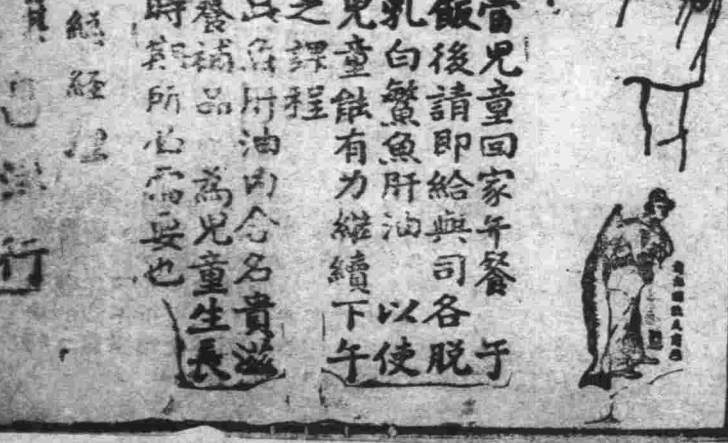 當兒童回家午餐 于
飯後請即給與司各脫
乳白鰵魚肝油 以使
兒童能有力繼續下午
之課程
此魚肝油內含名貴滋
養補品 為兒童生長
時期所必需要也
總經理
洋行